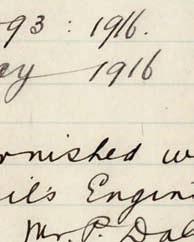 93 : 1916.
ay 1916
rnished w
il's Engin
Mr. P. Dal